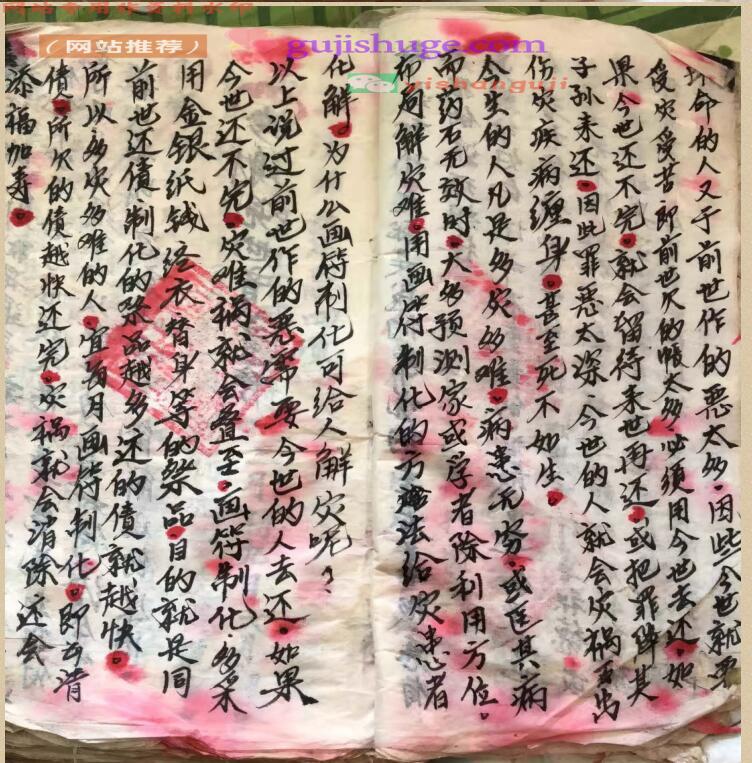 （网站推荐）
gujishuge.com
yishanguji
命的人又于前世作的恶太多，因此今世就要
受灾受苦，即前世欠的帐太多，必须用今世去还，如
果今世还不完，就会留待来世再还，或把罪降其
子孙来还，因此罪恶太深，今世的人就会灾祸百出
伤灾疾病缠身，甚至死不如生。
今生的人凡是多灾多难，病患无穷，或医其病
而药石无效时，大多预测家或学者除利用方位，
而何解灾难，用画符制化的方法给灾患者
化解。为什么画符制化可给人解灾呢？
以上说过前世作的恶需要今世的人去还，如果
今世还不完，灾难祸就会叠至，画符制化，多采
用金银纸钱给衣替身等的祭品，目的就是同
前世还债，制化的祭品越多还的债就越快。
所以，多灾多难的人，宜每月画符制化，即可清
债，所欠的债越快还完，灾祸就会消除，还会
添福加寿。